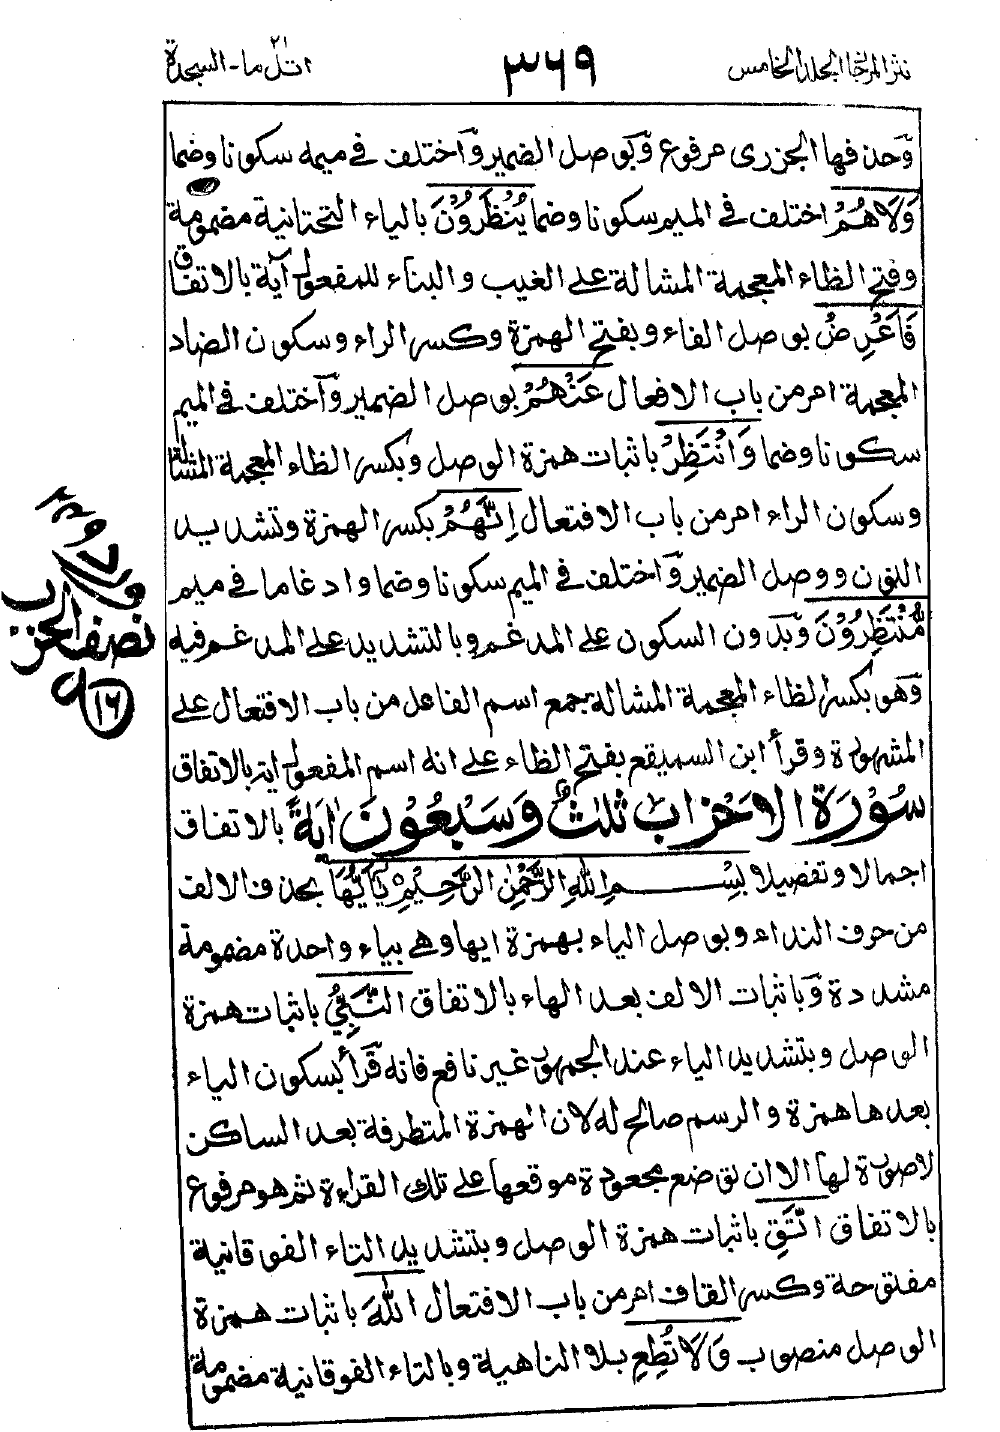 نثر المرجان الجلد الخامس
٣٦٩
اتل ما - السجدة ٢١
وحذفها الجزری مرفوع وبوصل الضمير واختلف في ميمه سكونا وضما
وَلَا هُمْ اختلف في الميم سكونا وضما يُنْظَرُوْنَ بالياء التحتانية مضمومة
وفتح الظاء المعجمة المشالة على الغيب والبناء للمفعول آية بالاتفاق
فَاَعْرِضْ بوصل الفاء وبفتح الهمزة وكسر الراء وسكون الضاد
المعجمة امر من باب الافعال عَنْهُمْ بوصل الضمير واختلف في الميم
سكونا وضما وَانْتَظِرْ باثبات همزة الوصل وبكسر الظاء المعجمة المشالة
وسكون الراء امر من باب الافتعال اِنَّهُمْ بكسر الهمزة وتشديد
النون ووصل الضمير واختلف في الميم سكونا وضما وادغاما في ميم
مُّنْتَظِرُوْنَ وبدون السكون على المدغم وبالتشديد على المدغم فيه
وهو بكسر الظاء المعجمة المشالة بجمع اسم الفاعل من باب الافتعال على
المشهورة وقرأ ابن السميقع بفتح الظاء على انه اسم المفعول اية بالاتفاق
سُوْرَةُ الاَحْزَابِ ثَلٰثٌ وَسَبْعُوْنَ اٰيَةً بالاتفاق
اجمالا وتفصيلا بِسْمِ اللهِ الرَّحْمٰنِ الرَّحِيْمِ يٰٓاَيُّهَا بحذف الالف
من حرف النداء وبوصل الياء بهمزة ايها وهي بياء واحدة مضمومة
مشددة وباثبات الالف بعد الهاء بالاتفاق النَّبِيُّ باثبات همزة
الوصل وبتشديد الياء عند الجمهور غير نافع فانه قرأ بسكون الياء
بعدها همزة والرسم صالح له لان الهمزة المتطرفة بعد الساكن
لا صورة لها الا ان توضع مجعودة موقعها على تلك القراءة ثم هو مرفوع
بالاتفاق اتَّقِ باثبات همزة الوصل وبتشديد التاء الفوقانية
مفتوحة وكسر القاف امر من باب الافتعال اللهَ باثبات همزة
الوصل منصوب وَلَا تُطِعِ بلا الناهية وبالتاء الفوقانية مضمومة
نصف الحزب
١٦